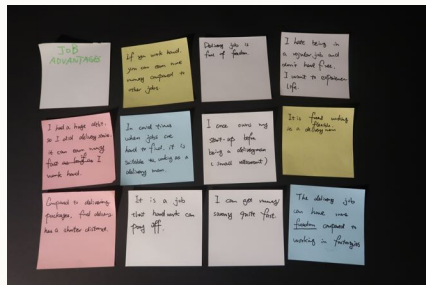 JOB
ADVANTAGES
If you work hard,
you can earn more
money compared to
other jobs.
Delivery job is
full of freedom.
I hate being in
a regular job and
don't want fixed.
I want to experience
life.
I had a huge debt.
so I did delivery since
it can earn money
fast
I
work hard.
In covid times
when jobs are
hard to find, it is
suitable to work as a
delivery man.
I once owns my
start-up before
being a deliveryman
(small restaurant)
It is
working
flexible
as a delivery man
Compared to delivering
packages, food delivery
has a shorter distance.
It is a job
that hard work can
pay off.
I can get money
quite fast.
The delivery job
can have more
freedom compared to
working in factories